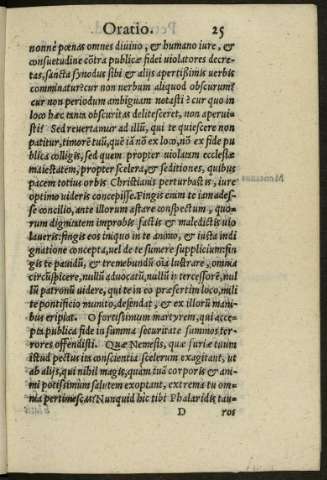 Oratio. 25
nonne pœnas omnes diuino, & humano iure, &
consuetudine cōtra publicæ fidei violatores decre-
tas, sancta synodus sibi & alijs apertißimis uerbis
comminatur? cur non uerbum aliquod obscurum?
cur non periodum ambiguam notasti? cur quo in
loco hæc tanta obscuritas delitesceret, non aperui-
sti? Sed reuertamur ad illū, qui te quiescere non
patitur, timorē tuū, quē iā nō ex loco, nō ex fide pu
blica colligis, sed quem propter uiolatam ecclesiæ
maiestatem, propter scelera, & seditiones, quibus
pacem totius orbis Christianis perturbastis, iure
optimo uideris concepisse. Fingis enim te iam ades-
se concilio, ante illorum astare conspectum, quo-
rum dignitatem improbis factis & maledictis uio
laueris: fingis eos iniquo in te animo, & iusta indi
gnatione concepta, uel de te sumere supplicium: fin
gis te pauidū, & tremebundū oīa lustrare, omnia
circūspicere, nullū aduocatū, nullū intercessorē, nul
lū patronū uidere, qui te in eo præsertim loco, mili
te pontificio munito, defendat, & ex illorū mani-
bus eripiat. O fortissimum martyrem, qui acce-
pta publica fide in summa securitate summos ter-
rores offendisti. Quæ Nemesis, quæ furiæ tuum
istud pectus in conscientia scelerum exagitant, ut
ab alijs, qui nihil magis, quàm tuā corporis & ani-
mi potissimùm salutem exoptant, extrema tu om-
nia pertimescas? Nunquid hic tibi Phalaridis tau-
D ros